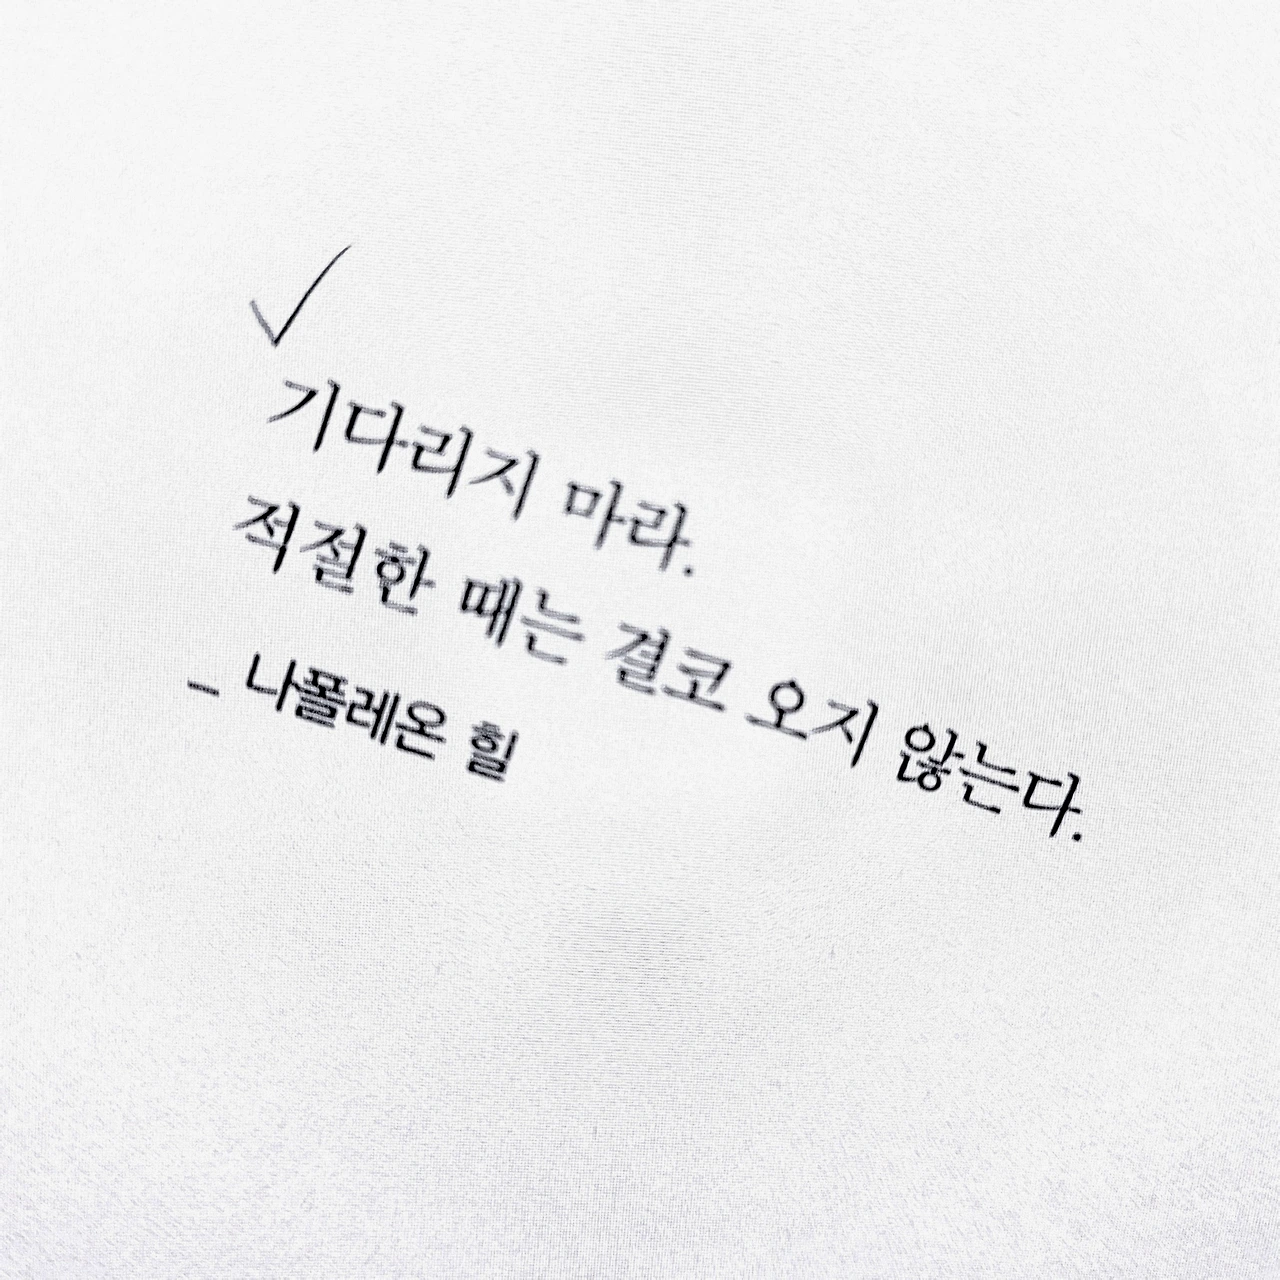 기다리지 마라.
적절한 때는 결코 오지 않는다.
_ 나폴레온 힐